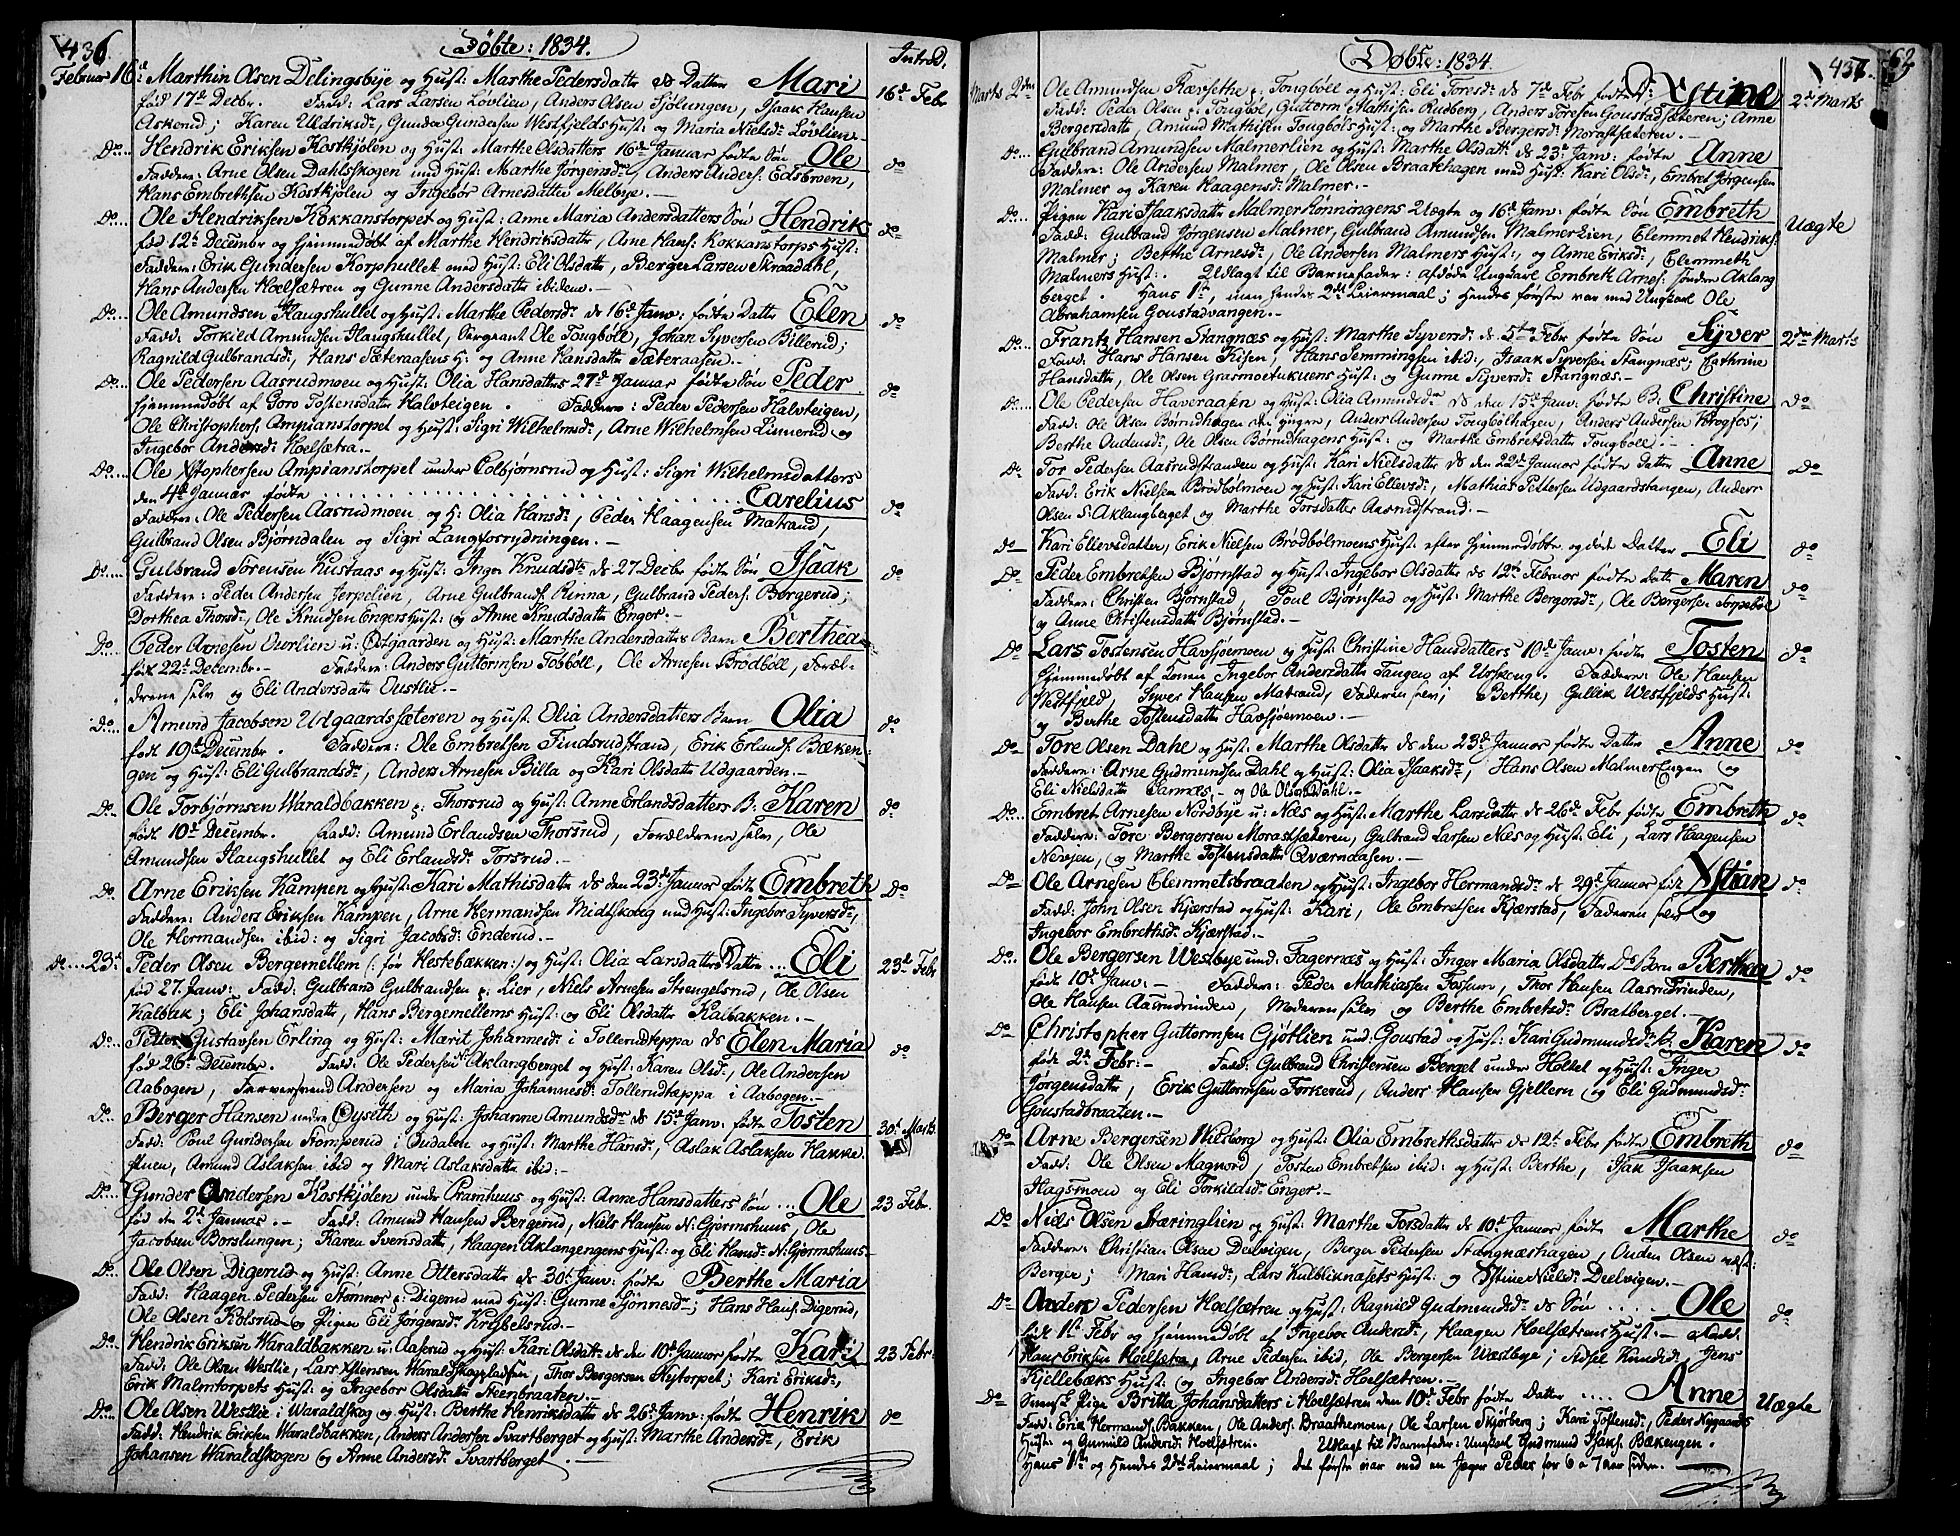 436
Døbte: 1834.
Introd.
Februar 16d Marthin Olsen Delingsbye og Hust: Marthe Pedersdattr ds Datter Mari 16d Febr
fød 17de Decbr. Fadd: Lars Larsen Løvlien, Anders Olsen Hansen
Askerud; Karen Uldriksdr, Gunder Gundersen Westfjelds Hust: og Maria Nielsdr Løvlien.
Do... Hendrik Eriksen Kostkjølen og Hust: Marthe Olsdatters 16d Januar fødte Søn Ole do
Faddere: Arne Olsen Dahlsskogen med Hust: Marthe Jørgensdr, Anders Anders: Edsbroen,
Hans Embrethsen Kostkjølen og Ingebor Arnesdatter Melbye.—
Do... Ole Hendriksen Kokkanstorpet og Hust: Anne Maria Andersdatters Søn Hendrik do
fød 12te Decembr og hjemmedøbt af Marthe Hendriksdattr, Arne Hans: Kokkanstorps Hust:
Faddere: Erik Gundersen Korphullet med Hust: Eli Olsdattr, Berger Larsen Skraadahl,
Hans Andersen Hoelsætren og Gunne Andersdattr ibidem.—
Do... Ole Amundsen Haugshullet og Hust: Marthe Pedersdr ds 16d Janv: fødte Dattr Elen do
Fadd: Torkild Amundsen Haugshullet, Sergeant Ole Tougbøle, Johan Syversen Billerud;
Ragnild Gulbrandsdr, Hans Sæteraasens H: og Anne Hansdattr Sæteraasen.
Do... Ole Pedersen Aasrudmoen og Hust: Olia Hansdatters 27d Januar fødte Søn Peder do
hjemmedøbt af Goro Tostensdattr Halvteigen. Faddere: Peder Pedersen Halvteigen,
Ole Christophers: Ampianstorpet og Hust: Sigri Wilhelmsdr, Arne Wilhelmsen Linnerud og
Ingebor Andersdr Hoelsætra.—
Do... Ole Xstophersen Ampianstorpet under Colbjørnsrud og Hust: Sigri Wilhelmsdatters
den 4de Januar fødte ........ Carelius do
Faddere: Ole Pedersen Aasrudmoen og H: Olia Hansdr, Peder Haagensen Matrand,
Gulbrand Olsen Bjørndalen og Sigri Langforsrydningen.—
Do... Gulbrand Sørensen Kustaas og Hust: Inger Knudsdr ds 27 Decbr fødte Søn Isaak do
Faddere: Peder Andersen Jerpelien, Arne Gulbrands: Rinna, Gulbrand Peders: Børgerud;
Dorthea Thorsdr, Ole Knudsen Engers Hust: og Anne Knudsdattr Enger.—
Do... Peder Arnesen Ourlien u: Østgaarden og Hust: Marthe Andersdatters Barn Berthea do
født 22d Decembr.— Faddere: Anders Guttormsen Tosbøll, Ole Arnesen Brødbøll, Foræl-
drene selv og Eli Andersdattr Oustlie.—
Do... Amund Jacobsen Udgaardssæteren og Hust: Olia Andersdatters Barn Olia do
født 19de Decembr. Faddere: Ole Embretsen Findsrudstrand, Erik Erlands: Bækken-
gen og Hust: Eli Gulbrandsdr, Anders Arnesen Billa og Kari Olsdattr Udgaarden.—
Do... Ole Torbjørnsen Waraldbakken : Thorsrud og Hust: Anne Erlandsdatters B: Karen do
født 10de Decembr. Fadd: Amund Erlandsen Thorsrud, Forældrene selv, Ole
Amundsen Haugshullet og Eli Erlandsdr Torsrud.—
Do. Arne Eriksen Kampen og Hust: Kari Mathisdattr ds den 23de Januar fødte Embreth Do
Faddere: Anders Eriksen Kampen, Arne Hermandsen Midtskoug med Hust: Ingebor Syversdr,
Ole Hermandsen ibid: og Sigri Jacobsdr Enderud.—
do....23d Peder Olsen Bergemellem (: før Heskebækken:) og Hust: Olia Larsdatters Datter... Eli 23d Febr
fød 27. Janv: Fadd: Gulbrand Gulbrandsen : Lier, Niels Arnesen Strengelsrud, Ole Olsen
Kalbak; Eli Johansdattr, Hans Bergemellems Hust: og Eli Olsdattr Kalbakken.—
Do. Petter Gustavsen Erling og Hust: Marit Johannesdr i Tollerudteppa ds Elen Maria do
fød 26d Decembr. Fadd: Ole Pedersen Aklangberget og Hust: Karen Olsdr, Ole Andersen
Aabogen, Farversvend Andersen og Maria Johannesdr Tollerudteppa i Aabogen.—
Do. Berger Hansen under Øyseth og Hust: Johanne Amundsdr ds 15de Janv: fødte Tosten 30t Marts
Fadd: Poul Gundersen Stomperud i Oudalen og Hust: Marthe Hansdr, Aslak Aslaksen Hakke-
stuen, Amund Aslaksen ibid og Mari Aslaksdattr ibid:—
Do. Gunder Andersen Kostkjølen under Pramhuus og Hust: Anne Hansdatters Søn ... Ole 23 Febr.
fød den 2d Januar.— Fadd: Amund Hansen Bergerud, Niels Hansen N: Gjermshuus, Ole
Jacobsen Borslungen; Karen Svensdattr, Haagen Aklangengens Hust: og Eli Hansdr N: Gjermshuus.
Do. Ole Olsen Digerud og Hust: Anne Ottersdattr ds 30t Janv: fødte Berthe Maria
Fadd: Haagen Pedersen Stomner : Digerud med Hust: Gunne Tjønnesdr; Hans Hans: Digerud,
Ole Olsen Kolsrud og Pigen Eli Jørgensdr Krybelsrud.—
Do... Hendrik Eriksen Waraldbakken u: Aaserud og Hust: Kari Olsdatr ds den 10d Januar fødte Kari 23 Febr.
Fadd: Ole Olsen Westlie, Lars Xstensen Waraldskogpladsen, Thor Bergersen Nytorpet; Kari Eriksdr,
Erik Malmtorpets Hust: og Ingebor Olsdattr Steenbraaten.—
Do... Ole Olsen Westlie i Waraldskog og Hust: Berthe Henriksdattr ds 26de Janv: født Henrik do
Fadd: Hendrik Eriksen Waraldbakken, Anders Andersen Svartberget og Hust: Marthe Andersdr, Erik
Johansen Waraldskogen og Anne Andersdr Svartberget.—
Døbte: 1834
437. 62
Marts 2den Ole Amundsen Færsethe : Tougbøle og Hust: Eli Toresdr ds 7de Febr fødte Dr. Xstine 2d Marts
Fadd: Peder Olsen : Tougbøl, Guttorm Mathisen Rudberg, Anders Toresen Goustadsæteren; Anne
Bergersdattr, Amund Mathisen Tougbøls Hust: og Marthe Bergersdr Morastsæteren.—
Do... Gulbrand Amundsen Malmerlien og Hust: Marthe Olsdatr ds 23de Janv: fødte Anne do
Faddere: Ole Andersen Malmer, Ole Olsen Braatehagen med Hust: Kari Olsdr, Embret Jørgensen
Malmer og Karen Haagensdr Malmer.—
Do... Pigen Kari Isaaksdattr Malmerkønningens Uægte og 16d Janv: fødte Søn Embreth Uægte
Fadd: Gulbrand Jørgensen Malmer, Gulbrand Amundsen Malmerlien, Clemmet Hendriks:
Malmer; Berthe Arnesdr, Ole Andersen Malmers Hust:, og Anne Eriksdr, Clemmeth
Malmers Hust:. Udlagt til Barnefader: afdøde Ungkarl Embret Arnes: Søndre Aklang
berget. Hans 1te, men hendes 2det Leiermaal; Hendes første var med Ungkarl Ole
Abrahamsen Goustadvangen.—
Do... Frantz Hansen Stangnæs og Hust: Marthe Syversdr ds 5te Febr fødte Søn Syver 2den Marts
Fadd: Hans Hansen Kisen, Hans Femmingsen ibid:, Isaak Syversen Stangnæs; Cathrine
Hansdattr, Ole Olsen Grasmoetukuens Hust: og Gunne Syversdr Stangnæs.—
Do... Ole Pedersen Haveraasen og Hust: Olia Amundsdr ds den 15de Janv: fødte B: Christine Do
Fadd: Ole Olsen Børndhagen den yngere, Anders Andersen Tougbølhagen, Anders Andersen Krogfos;
Berthe Oudensdr, Ole Olsen Børndhagens Hust: og Marthe Embretsdattr Tougbøle.
Do Tor Pedersen Aasrudstranden og Hust: Kari Nielsdattr ds den 22d Januar fødte Datter Anne Do
Fadd: Erik Nielsen Brødbølmoen og Hust: Kari Ellevsdr, Mathias Pettersen Udgaardstangen, Anders
Olsen S: Aklangberget og Marthe Torsdatter Aasrudstrand.—
do— Kari Ellevsdatter, Erik Nielsen Brødbølmoens Hust: efter hjemmedøbte og døde Datter Eli do
Do Peder Embretsen Bjørnstad og Hust: Ingebor Olsdattr ds 12te Februar fødte Dattr Maren do
Faddere: Christen Bjørnstad Poul Bjørnstad og Hust: Marthe Bergersdr, Ole Bergersen Torsbøle
og Anne Christensdattr Bjørnstad.—
Do Lars Tostensen Havsjømoen og Hust: Christine Hansdatters 10d Janv: fødte Tosten do
hjemmedøbt af Konen Ingebor Andersdattr Tangen af Urskoug. Faddere: Ole Hansen
Westfjeld, Syver Hansen Matrand, Faderen selv; Berthe, Gullik Westfjelds Hust:
og Berthe Tostensdattr Havsjøemoen.—
Do Tore Olsen Dahl og Hust: Marthe Olsdattr ds den 23d Januar fødte Datter Anne do
Faddere: Arne Gudmundsen Dahl og Hust: Olia Isaaksdr, Hans Olsen Malmer Engen og
Eli Nielsdattr Cannæs,— og Ole Olsen Dahl.—
Do. Embret Arnesen Nordbye u: Næs og Hust: Marthe Larsdattr ds 26de Febr fødte Embreth do
Faddere: Tore Bergersen Morastsæteren, Gulbrand Larsen Næs og Hust: Eli, Lars Haagensen
Nerejen, og Marthe Tostensdattr Qværndasen.—
Do— Ole Arnesen Clemmetsbraaten og Hust: Ingebor Hermandsdr ds 29de Januar fød Xstian do
Fadd: John Olsen Kjærstad og Hust: Kari, Ole Embretsen Kjærstad, Faderen selv og
Ingebor Embrethsdr Kjærstad.—
Do.. Ole Bergersen Westbye und. Fagernæs og Hust: Inger Maria Olsdattr Ds Barn Berthea do
født 10de Janv:— Faddere: Peder Mathiassen Fossum, Thor Hansen Aasrudrinden,
Ole Hansen Aasrudrinden, Moderen selv og Berthe Embretsdr Bratberget.—
Do Christopher Guttormsen Gjøtlien und: Goustad og Hust: Kari Gudmundsdr B: Karen do
født 2d Febr:— Fadd: Gulbrand Christensen Berget under Holtet og Hust: Inger
Jørgensdattr, Erik Guttormsen Torkerud, Anders Hansen Gjellern og Eli Gudmundsdr
Goustadbraaten.—
Do Arne Bergersen Wilsborg og Hust: Olia Embrethsdattr ds 12te Febr fødte Embreth do
Fadd: Ole Olsen Magnord, Tosten Embretsen ibid: og Hust: Berthe, Isak Isaaksen
Hagsmoen og Eli Torkildsdr Enger.—
Do Niels Olsen Støeringlien og Hust: Marthe Torsdattr ds 10de Januar født Marthe do
Faddere: Christian Olsen Delvigen, Berger Pedersen Stangnæshagen, Ouden Olsen
Berger; Mari Hansdr, Lars Kulbliknasets Hust: og Xstine Nielsdr Deelvigen.—
Do Anders Pedersen Hoelsætren og Hust: Ragnild Gudmundsdr ds Søn ..... Ole do
født 1st Febr og hjemmedøbt af Ingebor Andersdr, Haagen Hoelsætrens Hust:— Fadd:
Hans Eriksen Hoelsætra, Arne Pedersen ibid, Ole Bergersen Wæstbye; Sidsel Knudsdr, Jens
Kjellebæks Hust: og Ingebor Andersdr Hoelsætren.—
Do Svensk Pige Britta Johansdatters i Hoelsætren den 10d Febr fødte Datter .... Anne Uægte
Fadd: Erik Hermands: Bakken, Ole Anders: Braathemoen, Ole Larsen Skjørberg; Kari Tostensdr, Peder Nygaards
Hust: og Gunuld Andersdr Hoelsætren. Udlagt til Barnefader: Ungkarl Gudmund Isaks: Bækengen.
Hans 1ste og Hendes 2det Leiermaal; Det første var med en Jæger Peder for 6 a 7 aar siden.—